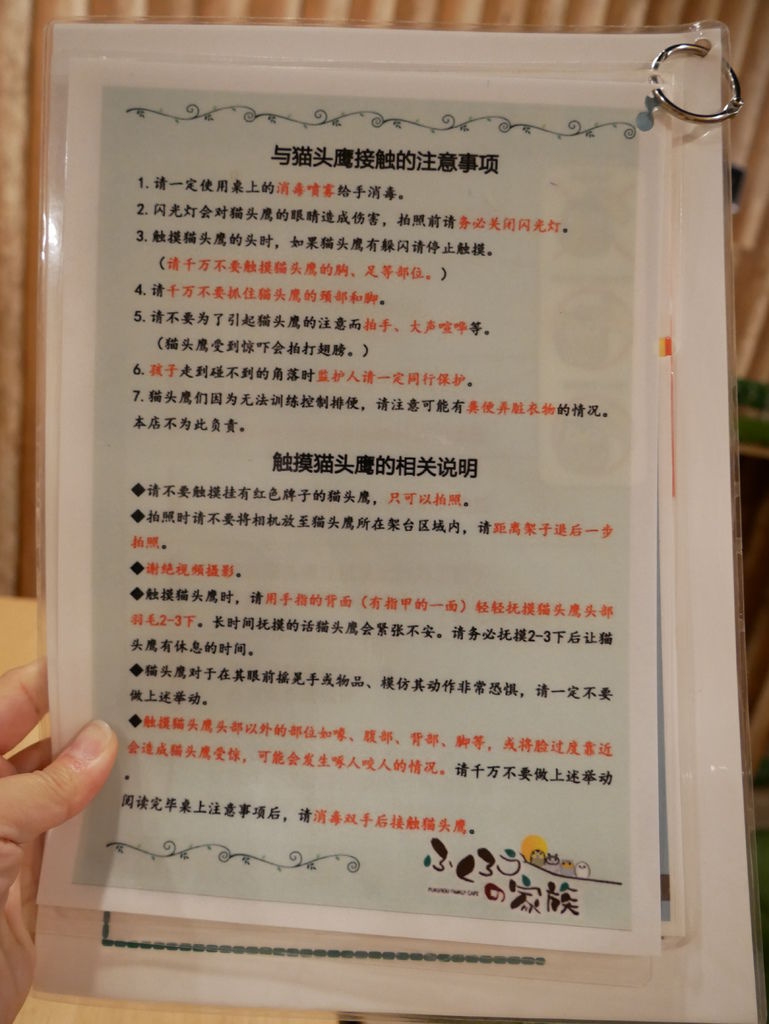 与猫头鹰接触的注意事项
1. 请一定使用桌上的消毒喷雾给手消毒。
2. 闪光灯会对猫头鹰的眼睛造成伤害，拍照前请务必关闭闪光灯。
3. 触摸猫头鹰的头时，如果猫头鹰有躲闪请停止触摸。
（请千万不要触摸猫头鹰的胸、足等部位。）
4. 请千万不要抓住猫头鹰的颈部和脚。
5. 请不要为了引起猫头鹰的注意而拍手、大声喧哗等。
（猫头鹰受到惊吓会拍打翅膀。）
6. 孩子走到碰不到的角落时监护人请一定同行保护。
7. 猫头鹰们因为无法训练控制排便，请注意可能有粪便弄脏衣物的情况。
本店不为此负责。
触摸猫头鹰的相关说明
◆请不要触摸挂有红色牌子的猫头鹰，只可以拍照。
◆拍照时请不要将相机放至猫头鹰所在架台区域内，请距离架子退后一步
拍照。
◆谢绝视频摄影。
◆触摸猫头鹰时，请用手指的背面（有指甲的一面）轻轻抚摸猫头鹰头部
羽毛2-3下。长时间抚摸的话猫头鹰会紧张不安。请务必抚摸2-3下后让猫
头鹰有休息的时间。
◆猫头鹰对于在其眼前摇晃手或物品、模仿其动作非常恐惧，请一定不要
做上述举动。
◆触摸猫头鹰头部以外的部位如喙、腹部、背部、脚等，或将脸过度靠近
会造成猫头鹰受惊，可能会发生啄人咬人的情况。请千万不要做上述举动
。
阅读完毕桌上注意事项后，请消毒双手后接触猫头鹰。
ふくろう
FUKUROU FAMILY CAFE
の家族